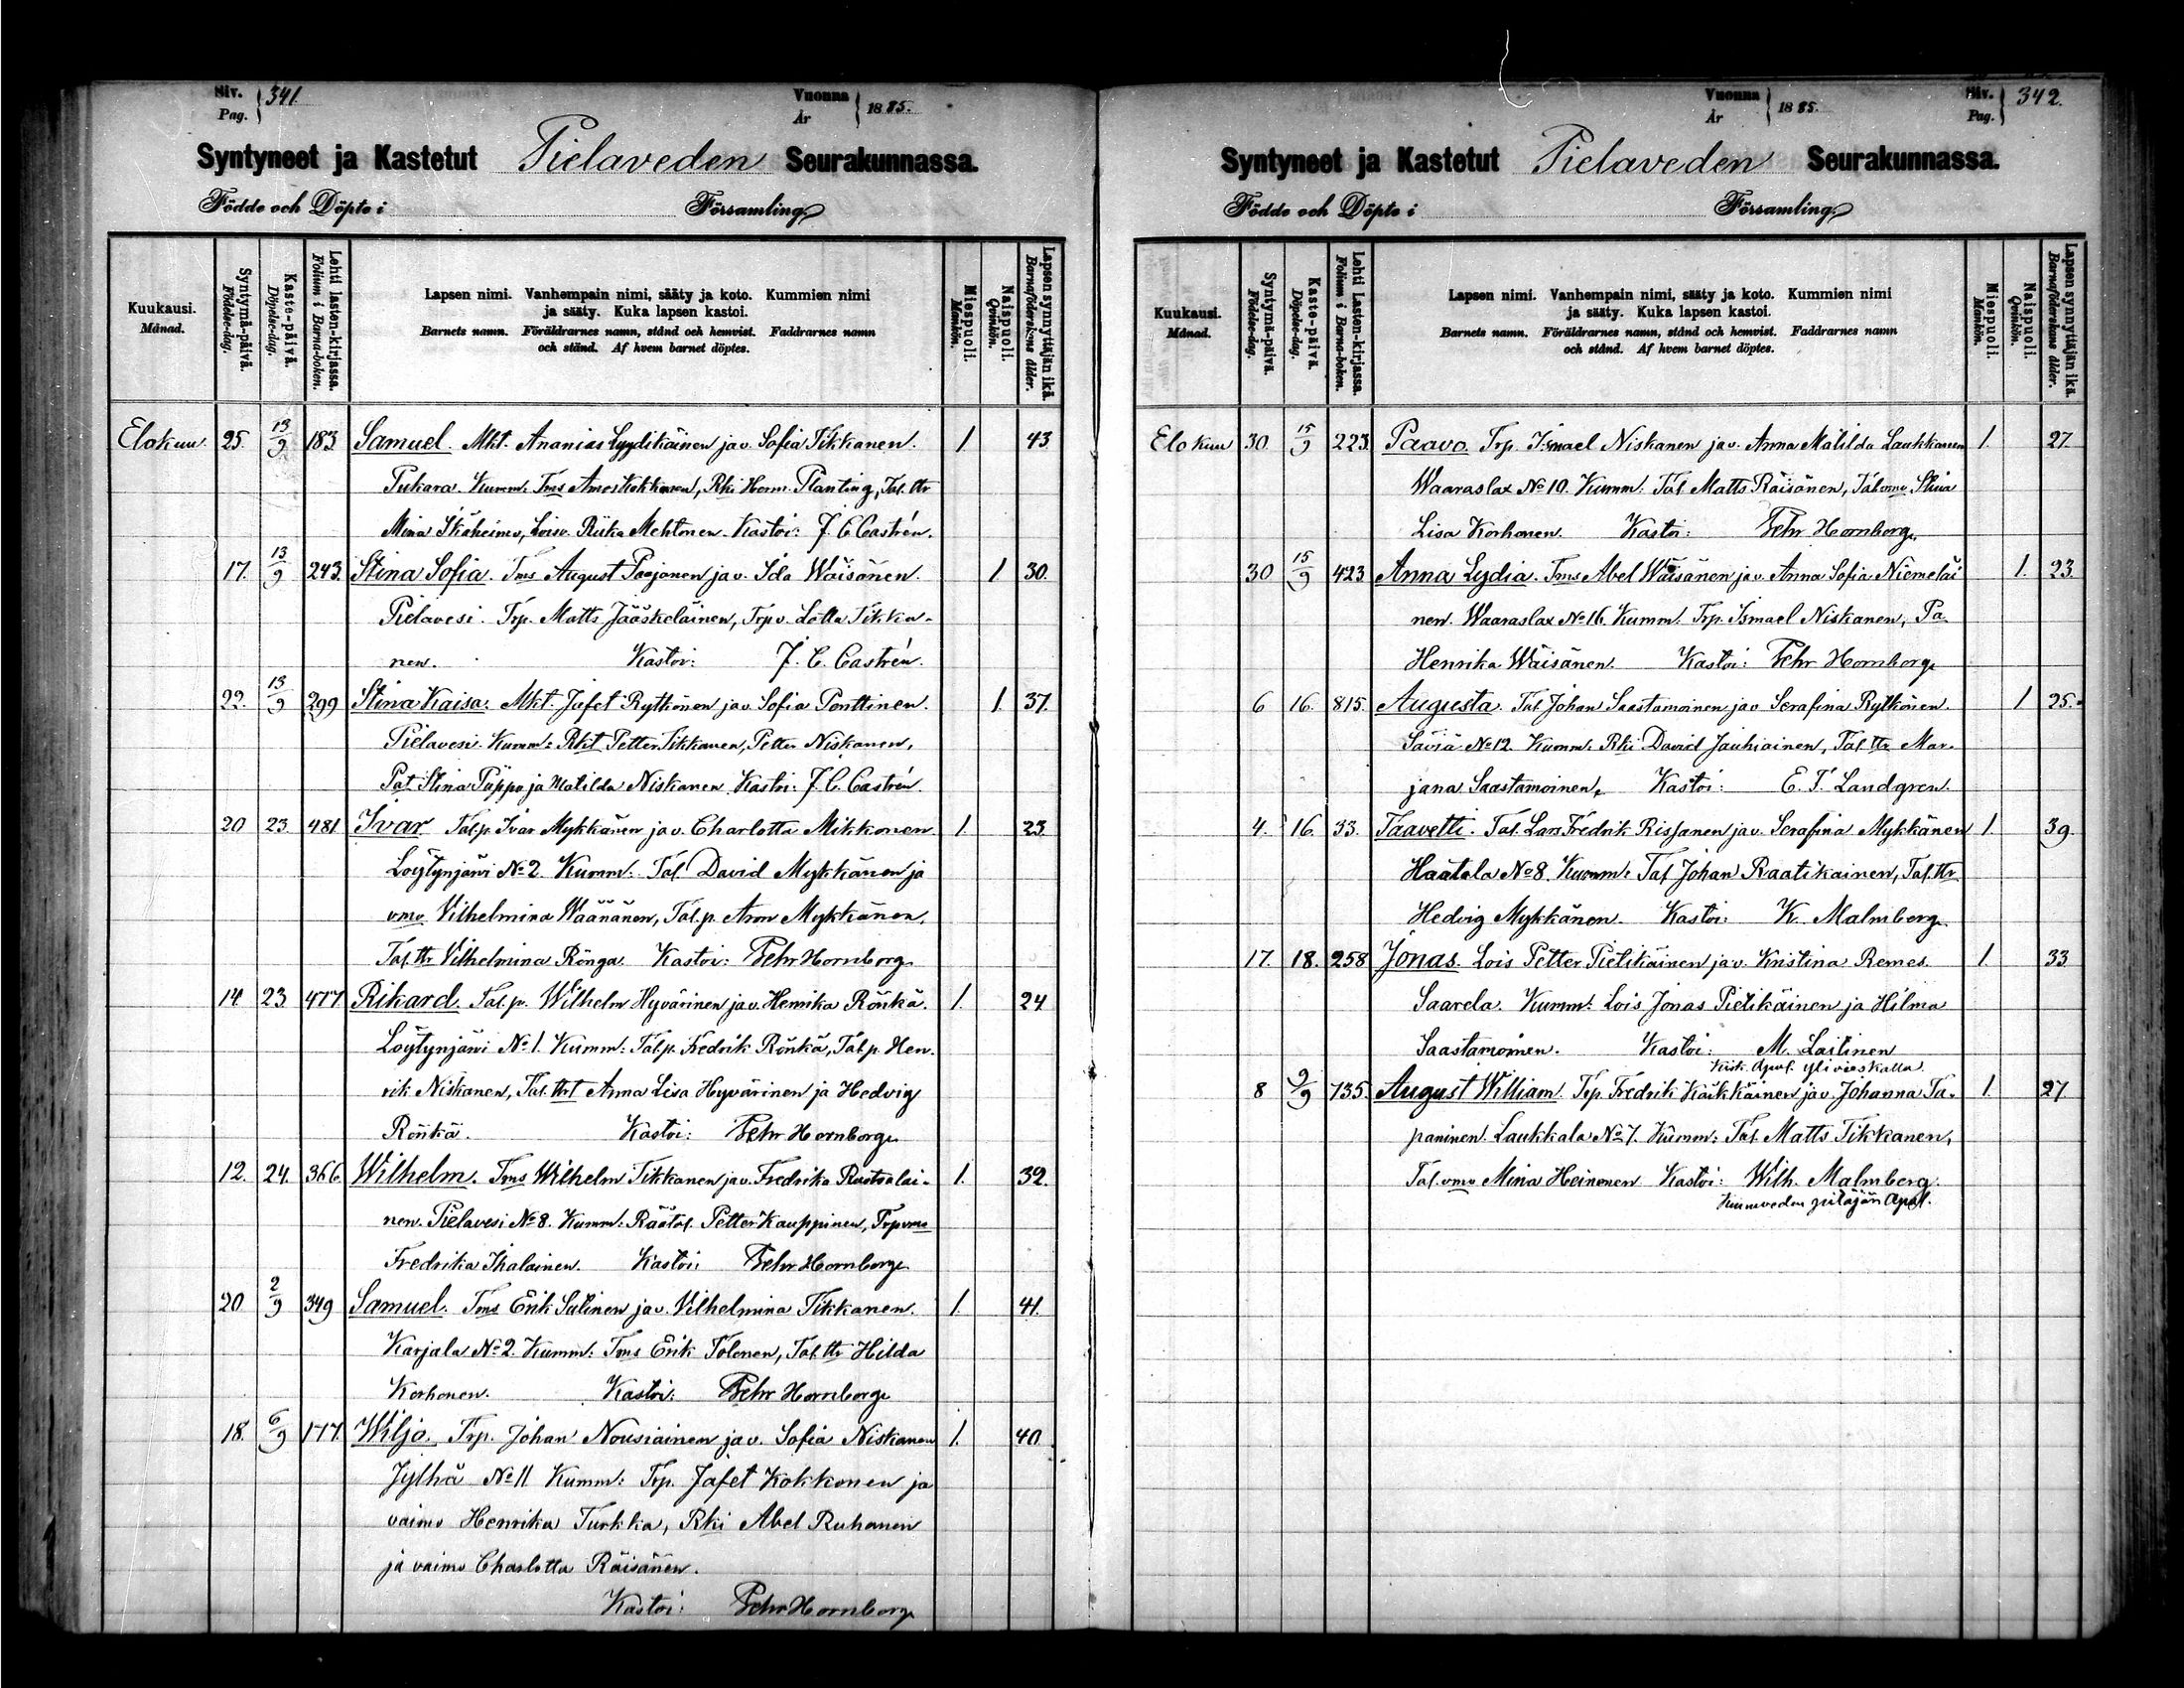 Siv. Pag. 341.
Vuonna År 1885.
Syntyneet ja Kastetut Pielaveden Seurakunnassa.
Födde och Döpte i Församling
Kuukausi. Månad.
Syntymä-päivä. Födelse-dag.
Kaste-päivä. Döpelse-dag.
Lehti lasten-kirjassa. Folium i Barna-boken.
Lapsen nimi. Vanhempain nimi, sääty ja koto. Kummien nimi
ja sääty. Kuka lapsen kastoi.
Barnets namn. Föräldrarnes namn, stånd och hemvist. Faddrarnes namn
och stånd. Af hvem barnet döptes.
Miespuoli. Mankön.
Naispuoli. Qvinkön.
Lapsen synnyttäjän ikä. Barnaföderskans ålder.
Elokuu. 25. 13/9 183 Samuel. Mkt. Ananias Lyydikäinen ja v. Sofia Tikkanen. 1. 43
Pukara. Kumm: Tms Amos Kokkonen, Rki Herm. Planting, Tal. ttr
Mina Ikäheimo, Loisv. Riika Mehtonen. Kastoi: J. C. Castrén.
17. 13/9 243. Stina Sofia. Tms August Paejonen ja v. Ida Wäisänen. 1 30.
Pielavesi. Trp. Matts Jääskeläinen, Trp v. Lotta Tikka-
nen. Kastoi: J. C. Castrén.
22. 13/9 299 Stina Kaisa. Mkt. Jafet Rytkönen ja v. Sofia Ponttinen. 1. 37.
Pielavesi. Kumm: Rkit Petter Tikkanen, Petter Niskanen,
Pat. Stina Pappo ja Matilda Niskanen. Kastoi: J. C. Castrén
20 23. 481. Ivar. Tal.p. Ivar Mykkänen ja v. Charlotta Mikkonen 1. 23.
Löytynjärvi No 2. Kumm: Tal. David Mykkänen ja
vmo Vilhelmina Wäänänen, Tal.p. Aron Mykkänen,
Tal. ttr Vilhelmina Rönga. Kastoi: Fehr Hornborg
14. 23 477. Rikard. Tal.p. Wilhelm Hyvärinen ja v. Henrika Rönkä. 1. 24
Löytynjärvi No 1. Kumm: Tal.p. Fredrik Rönkä, Tal.p. Hen-
rik Niskanen, Tal. ttrt Anna Lisa Hyvärinen ja Hedvig
Rönkä. Kastoi: Fehr Hornborg
12. 24. 366. Wilhelm. Tms Wilhelm Tikkanen ja v. Fredrika Ruotsalai- 1. 32.
nen. Pielavesi No 8. Kumm: Räätäl. Petter Kauppinen, Trp vmo
Fredrika Ihalainen. Kastoi: Fehr Hornborg
20. 2/9 349 Samuel. Tms Erik Sutinen ja v. Vilhelmina Tikkanen. 1. 41.
Karjala No 2. Kumm: Tms Erik Tolonen, Tal. ttr Hilda
Korhonen. Kastoi: Fehr Hornborg
18. 6/9 177. Wiljo. Trp. Johan Nousiainen ja v. Sofia Niskanen 1. 40
Jylhä No 11 Kumm: Trp. Jafet Kokkonen ja
vaimo Henrika Turkka, Rki Abel Ruhanen
ja vaimo Charlotta Räisänen.
Kastoi: Fehr Hornborg
Siv. Pag. 342.
Vuonna År 1885.
Syntyneet ja Kastetut Pielaveden Seurakunnassa.
Födde och Döpte i Församling
Kuukausi. Månad.
Syntymä-päivä. Födelse-dag.
Kaste-päivä. Döpelse-dag.
Lehti Lasten-kirjassa. Folium i Barna-boken.
Lapsen nimi. Vanhempain nimi, sääty ja koto. Kummien nimi
ja sääty. Kuka lapsen kastoi.
Barnets namn. Föräldrarnes namn, stånd och hemvist. Faddrarnes namn
och stånd. Af hvem barnet döptes.
Miespuoli. Mankön.
Naispuoli. Qvinkön.
Lapsen synnyttäjän ikä. Barnaföderskans ålder.
Elokuu 30. 15/9 223. Paavo. Trp. Ismael Niskanen ja v. Anna Matilda Laukkanen 1. 27.
Waaraslax No 10. Kumm: Tal. Matts Räisänen, Tal. vmo Stina
Lisa Korhonen. Kastoi: Fehr Hornborg
30 15/9 423 Anna Lydia. Tms Abel Wäisänen ja v. Anna Sofia Niemeläi 1. 23.
nen. Waaraslax No 16. Kumm. Trp. Ismael Niskanen, Pa.
Henrika Wäisänen. Kastoi: Fehr Hornborg
6 16. 815. Augusta. Tal. Johan Saastamoinen ja v Serafina Rytkönen. 1 25.
Säviä No 12. Kumm: Rki David Jauhiainen, Tal. ttr Mar-
jana Saastamoinen, Kastoi: E. F. Landgren.
4. 16. 33. Taavetti. Tal. Lars Fredrik Rissanen ja v. Serafina Mykkänen 1. 39.
Haatala No 8. Kumm: Tal Johan Raatikainen, Tal. ttr
Hedvig Mykkänen. Kastoi: K. Malmberg
17. 18. 258 Jonas. Lois Petter Pietikäinen ja v. Kristina Remes. 1. 33
Saarela. Kumm: Lois Jonas Pietikäinen ja Hilma
Saastamoinen. Kastoi: M. Laitinen
Kirk. Apul. Ylivieskalla
8 9/9 735. August William. Trp. Fredrik Kärkkäinen ja v. Johanna Ta- 1. 27
paninen. Laukkala No 7. Kumm: Tal. Matts Tikkanen,
Tal. vmo Mina Heinonen Kastoi: Wilh. Malmberg.
pitäjän Apul.